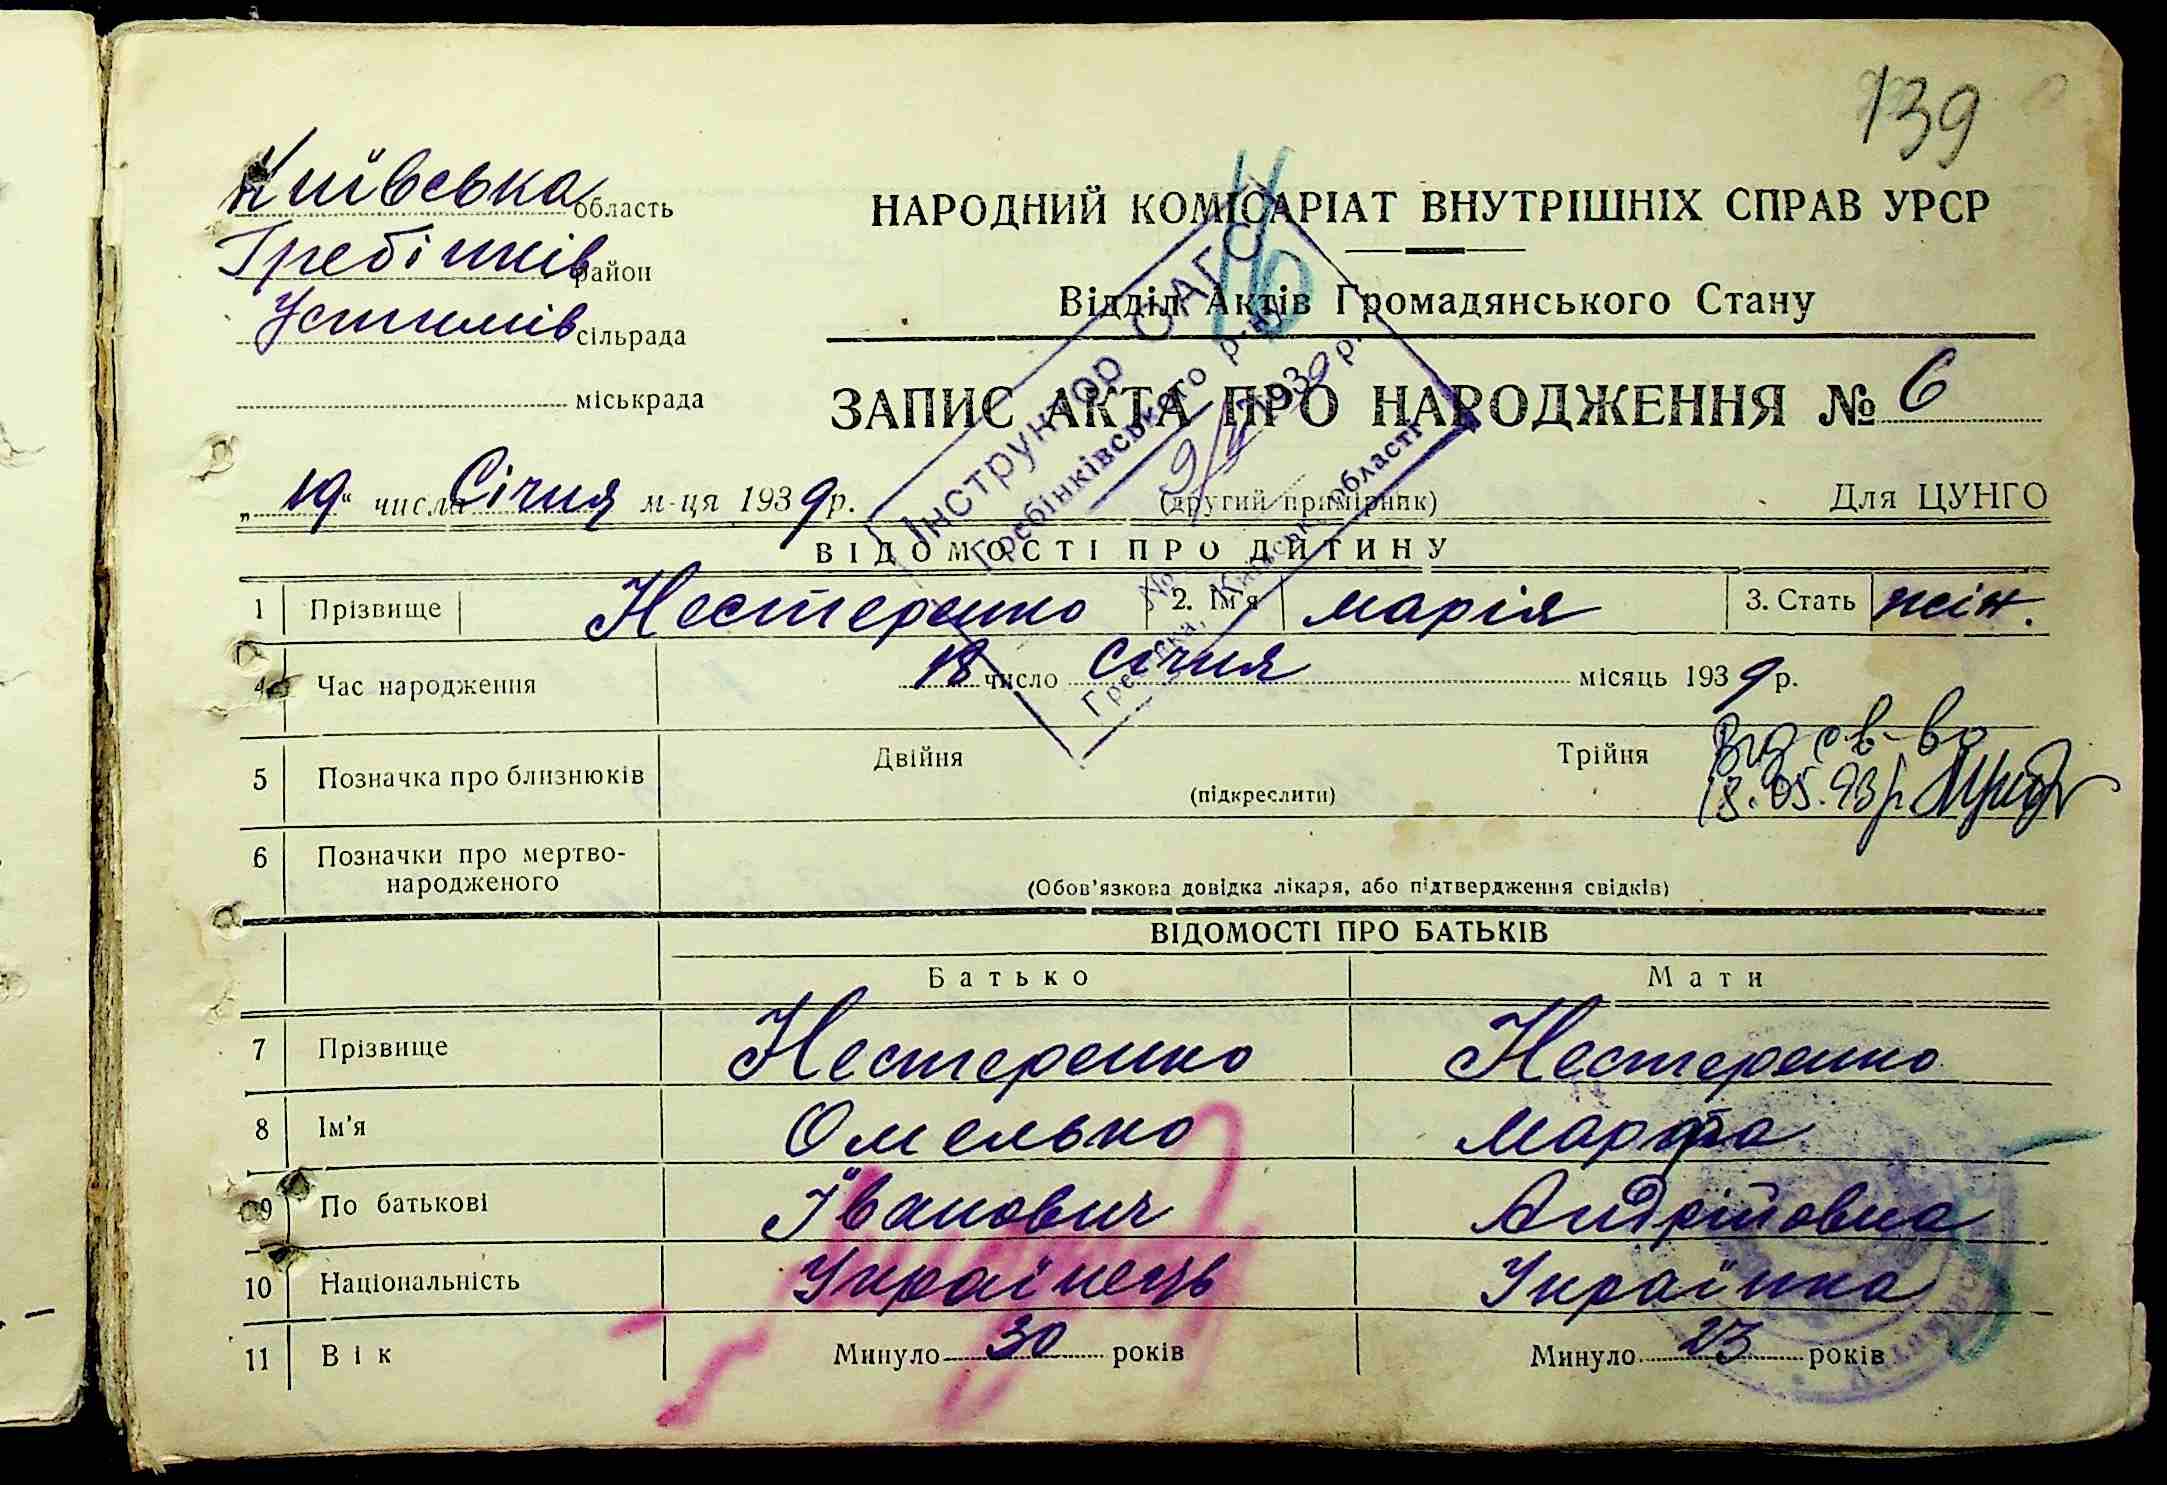 139
Київська область
НАРОДНИЙ КОМІСАРІАТ ВНУТРІШНІХ СПРАВ УРСР
Гребінків район
Відділ Актів Громадянського Стану
Устимів сільрада
міськрада
ЗАПИС АКТА ПРО НАРОДЖЕННЯ № 6
„19“ числа Січня м-ця 1939 р.
(другий примірник)
Для ЦУНГО
Інструктор ОАГС
Гребінківського р-ну
Київськ. області
ВІДОМОСТІ ПРО ДИТИНУ
1 Прізвище Нестеренко 2. Ім'я марія 3. Стать жін.
4 Час народження 18 число Січня місяць 1939 р.
5 Позначка про близнюків Двійня Трійня
(підкреслити)
св-во
18.05.93р.
6 Позначки про мертво-
народженого
(Обов'язкова довідка лікаря, або підтвердження свідків)
ВІДОМОСТІ ПРО БАТЬКІВ
Батько Мати
7 Прізвище Нестеренко Нестеренко
8 Ім'я Омелько Марфа
9 По батькові Іванович Андрійовна
10 Національність Українець Українка
11 Вік Минуло 30 років Минуло 23 років